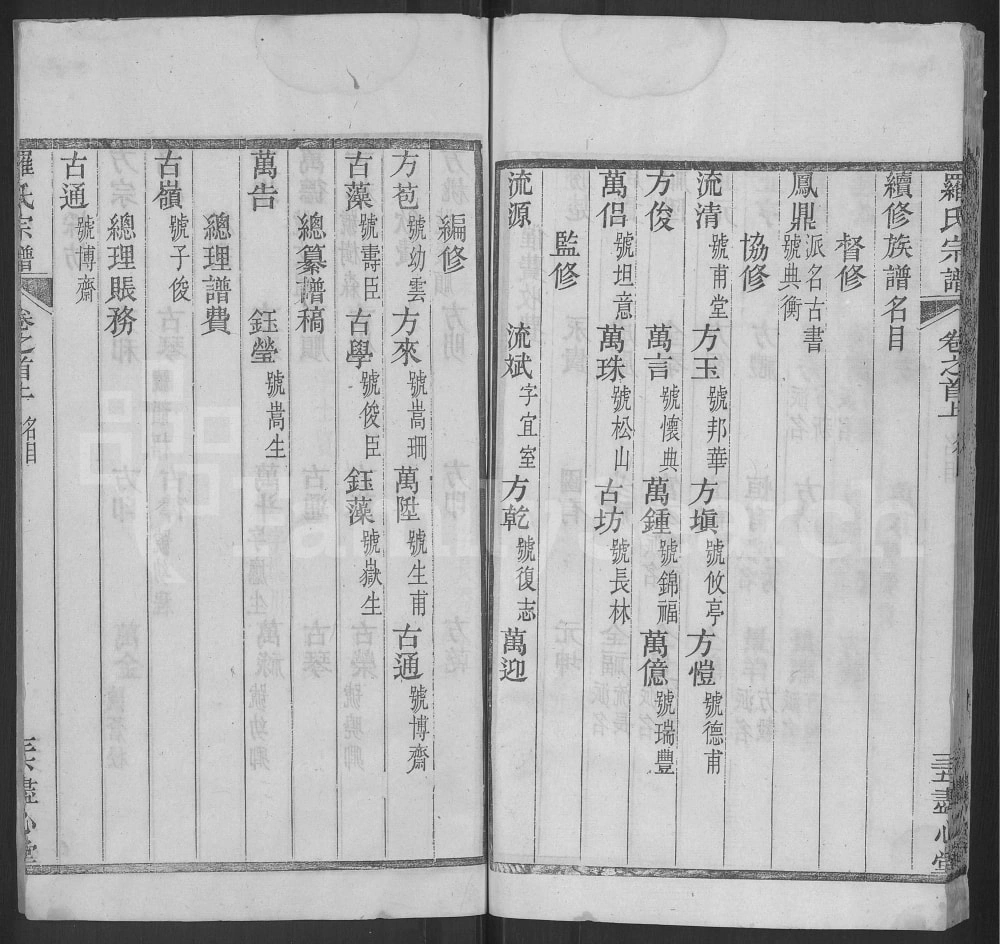 羅氏宗譜 卷之首上 名目 盡心堂
續修族譜名目
督修
鳳鼎 派名古書 號典衡
協修
流清 號甫堂 方玉 號邦華 方塡 號攸亭 方愷 號德甫
方俊 萬言 號懷典 萬鍾 號錦福 萬億 號瑞豐
萬侶 號坦意 萬珠 號松山 古坊 號長林
監修
流源 流斌 字宜室 方乾 號復志 萬迎
編修
方苞 號幼雲 方來 號嵩珊 萬陞 號生甫 古通 號博齋
古藻 號壽臣 古學 號俊臣 鈺藻 號嶽生
總纂譜稿
萬告 鈺瑩 號嵩生
總理譜費
古嶺 號子俊
總理賬務
古通 號博齋
羅氏宗譜 卷之首上 名目 盡心堂